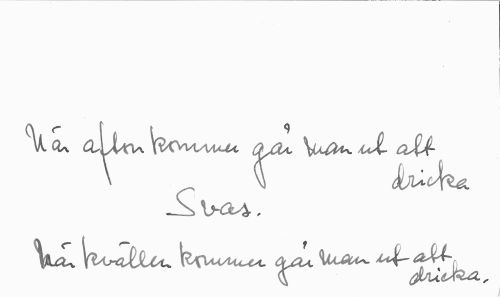 När afton kommer går man ut att
dricka
Svas.
När kvällen kommer går man ut att
dricka.